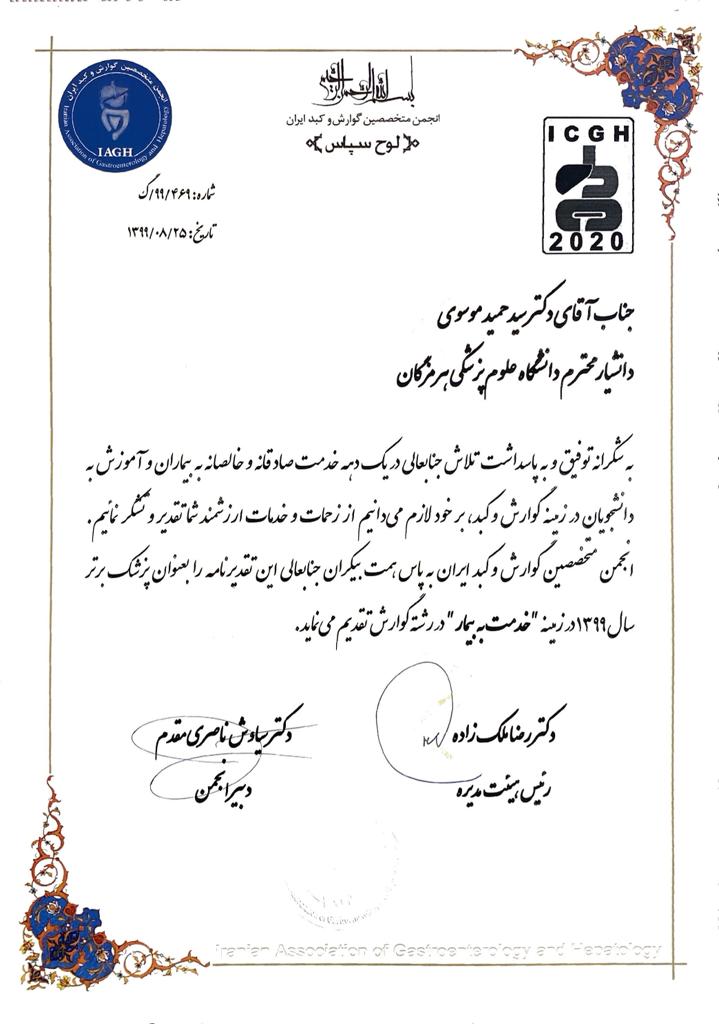 بسم الله الرحمن الرحیم
انجمن متخصصین گوارش و کبد ایران
لوح سپاس
انجمن متخصصین گوارش و کبد ایران
IAGH
Iranian Association of Gastroenterology and Hepatology
ICGH
2020
شماره: ۹۹/۴۶۹/گ
تاریخ: ۱۳۹۹/۰۸/۲۵
جناب آقای دکتر سید حمید موسوی
دانشیار محترم دانشگاه علوم پزشکی هرمزگان
به شکرانه توفیق و به پاسداشت تلاش جنابعالی در یک دهه خدمت صادقانه و خالصانه به بیماران و آموزش به
دانشجویان در زمینه گوارش و کبد، بر خود لازم می‌دانیم از زحمات و خدمات ارزشمند شما تقدیر و تشکر نمائیم.
انجمن متخصصین گوارش و کبد ایران به پاس همت بیکران جنابعالی این تقدیرنامه را بعنوان پزشک برتر
سال ۱۳۹۹ در زمینه "خدمت به بیمار" در رشته گوارش تقدیم می‌نماید.
دکتر رضا ملک زاده
رئیس هیئت مدیره
دکتر سیاوش ناصری مقدم
دبیر انجمن
Iranian Association of Gastroenterology and Hepatology